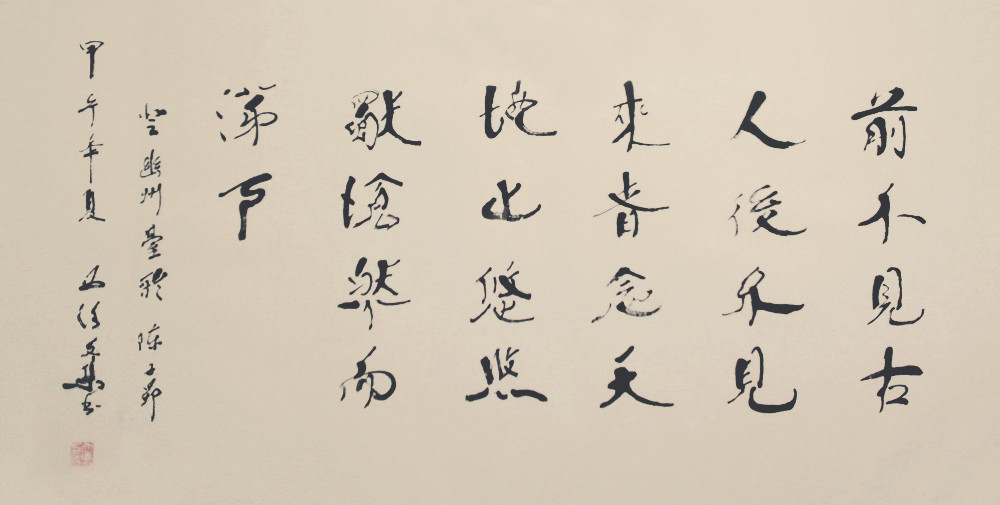 前不見古
人後不見
來者念天
地之悠悠
獨愴然而
涕下
登幽州臺歌 陳子昂
甲午年夏 書